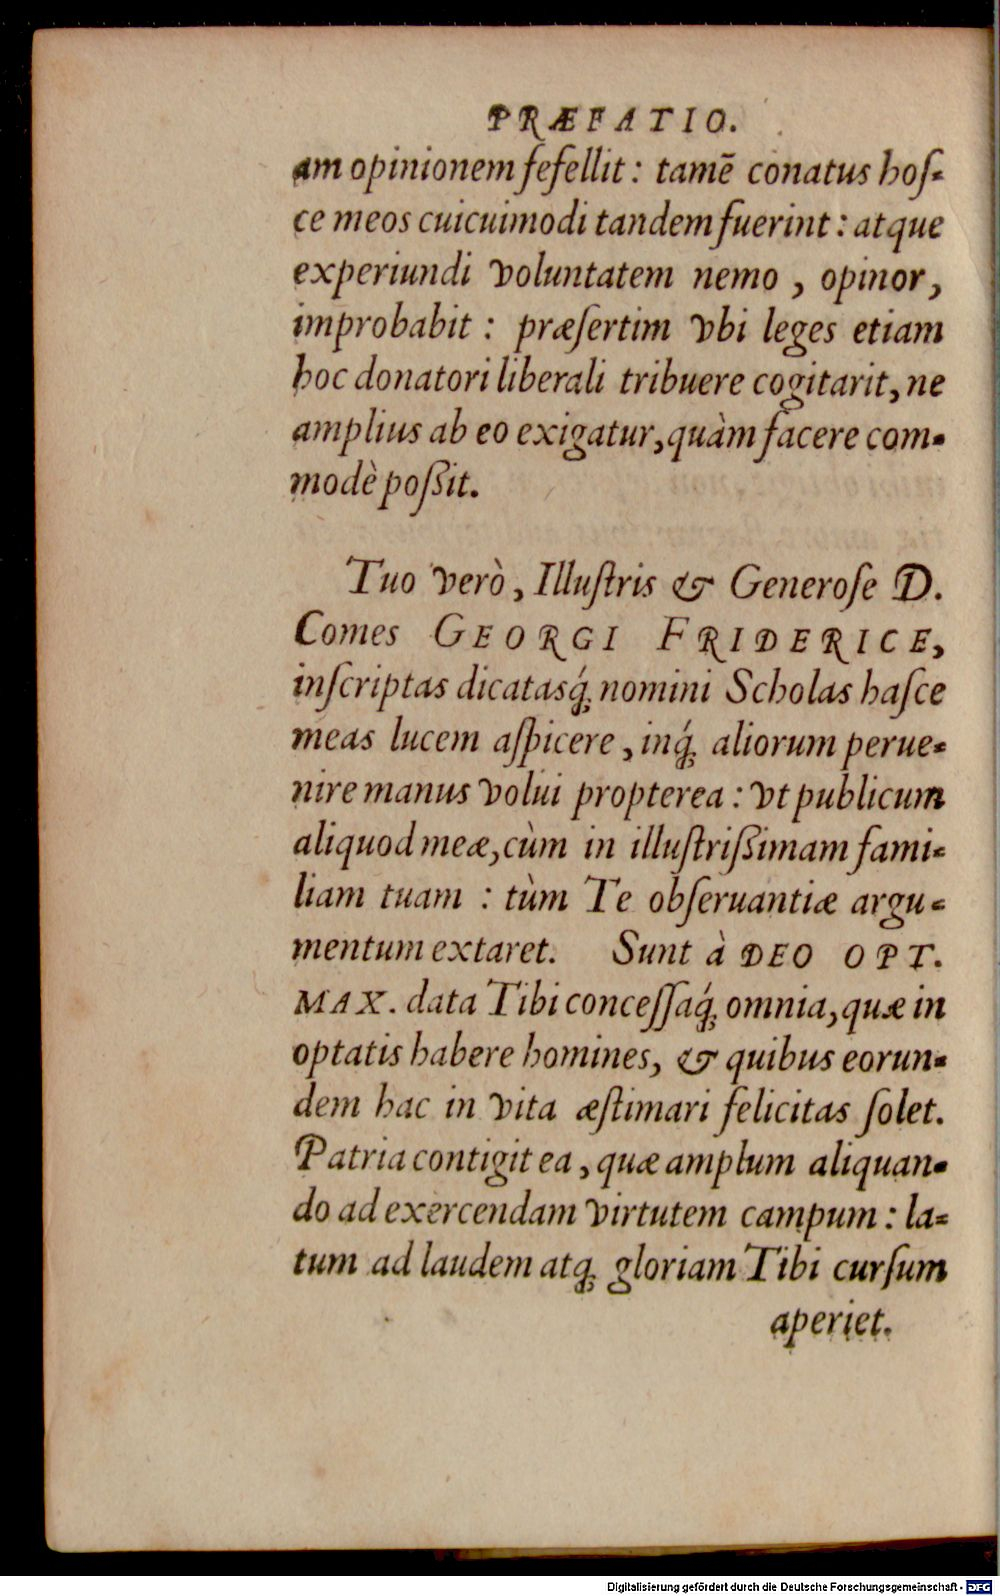 PRÆFATIO.
am opinionem fefellit: tamē conatus hoſ-
ce meos cuicuimodi tandem fuerint: atque
experiundi voluntatem nemo, opinor,
improbabit: præſertim vbi leges etiam
hoc donatori liberali tribuere cogitarit, ne
amplius ab eo exigatur, quàm facere com-
modè poßit.
Tuo verò, Illuſtris & Generoſe D.
Comes GEORGI FRIDERICE,
inſcriptas dicatasq́; nomini Scholas haſce
meas lucem aſpicere, inq́; aliorum perue-
nire manus volui propterea: vt publicum
aliquod meæ, cùm in illuſtrißimam fami-
liam tuam: tùm Te obſeruantiæ argu-
mentum extaret. Sunt à DEO OPT.
MAX. data Tibi conceſſaq́; omnia, quæ in
optatis habere homines, & quibus eorun-
dem hac in vita æſtimari felicitas ſolet.
Patria contigit ea, quæ amplum aliquan-
do ad exercendam virtutem campum: la-
tum ad laudem atq; gloriam Tibi curſum
aperiet.
Digitalisierung gefördert durch die Deutsche Forschungsgemeinschaft - DFG